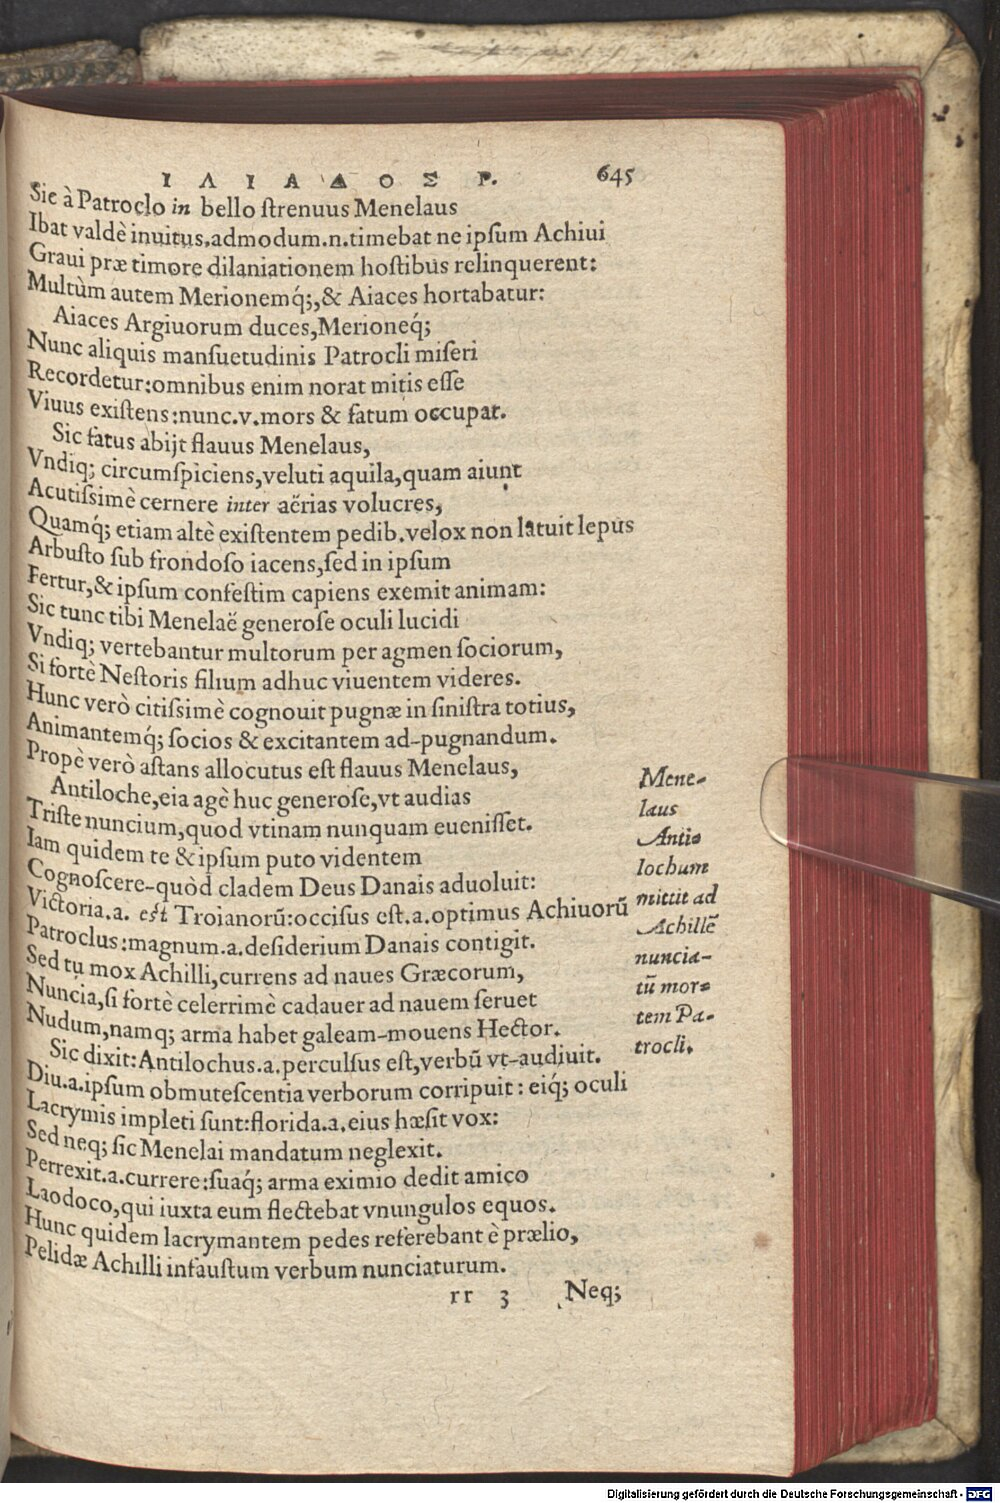 ΙΛΙΑΔΟΣ Ρ. 645
Sic à Patroclo in bello ſtrenuus Menelaus
Ibat valdè inuitus, admodum.n.timebat ne ipſum Achiui
Graui præ timore dilaniationem hoſtibus relinquerent:
Multùm autem Merionemq́;,& Aiaces hortabatur:
Aiaces Argiuorum duces,Merioneq́;
Nunc aliquis manſuetudinis Patrocli miſeri
Recordetur:omnibus enim norat mitis eſſe
Viuus exiſtens:nunc.v.mors & fatum occupat.
Sic fatus abijt flauus Menelaus,
Vndiq; circumſpiciens,veluti aquila,quam aiunt
Acutiſsimè cernere inter aërias volucres,
Quamq́; etiam altè exiſtentem pedib.velox non latuit lepus
Arbuſto ſub frondoſo iacens,ſed in ipſum
Fertur,& ipſum confeſtim capiens exemit animam:
Sic tunc tibi Menelaë generoſe oculi lucidi
Vndiq; vertebantur multorum per agmen ſociorum,
Si fortè Neſtoris filium adhuc viuentem videres.
Hunc verò citiſsimè cognouit pugnæ in ſiniſtra totius,
Animantemq́; ſocios & excitantem ad-pugnandum.
Propè verò aſtans allocutus eſt flauus Menelaus,
Antiloche,eia agè huc generoſe,vt audias
Triſte nuncium,quod vtinam nunquam eueniſſet.
Iam quidem te & ipſum puto videntem
Cognoſcere-quòd cladem Deus Danais aduoluit:
Victoria.a. est Troianorũ:occiſus eſt.a.optimus Achiuorũ
Patroclus:magnum.a.deſiderium Danais contigit.
Sed tu mox Achilli,currens ad naues Græcorum,
Nuncia,ſi fortè celerrimè cadauer ad nauem ſeruet
Nudum,namq; arma habet galeam-mouens Hector.
Sic dixit:Antilochus.a.perculſus eſt,verbũ vt-audiuit.
Diu.a.ipſum obmuteſcentia verborum corripuit: eiq́; oculi
Lacrymis impleti ſunt:florida.a.eius hæſit vox:
Sed neq; ſic Menelai mandatum neglexit.
Perrexit.a.currere:ſuaq́; arma eximio dedit amico
Laodoco,qui iuxta eum flectebat vnungulos equos.
Hunc quidem lacrymantem pedes referebant è prælio,
Pelidæ Achilli infauſtum verbum nunciaturum.
Mene-
laus
Anti-
lochum
mittit ad
Achillẽ
nuncia-
tũ mor-
tem Pa-
trocli.
rr 3 Neq;
Digitalisierung gefördert durch die Deutsche Forschungsgemeinschaft - DFG